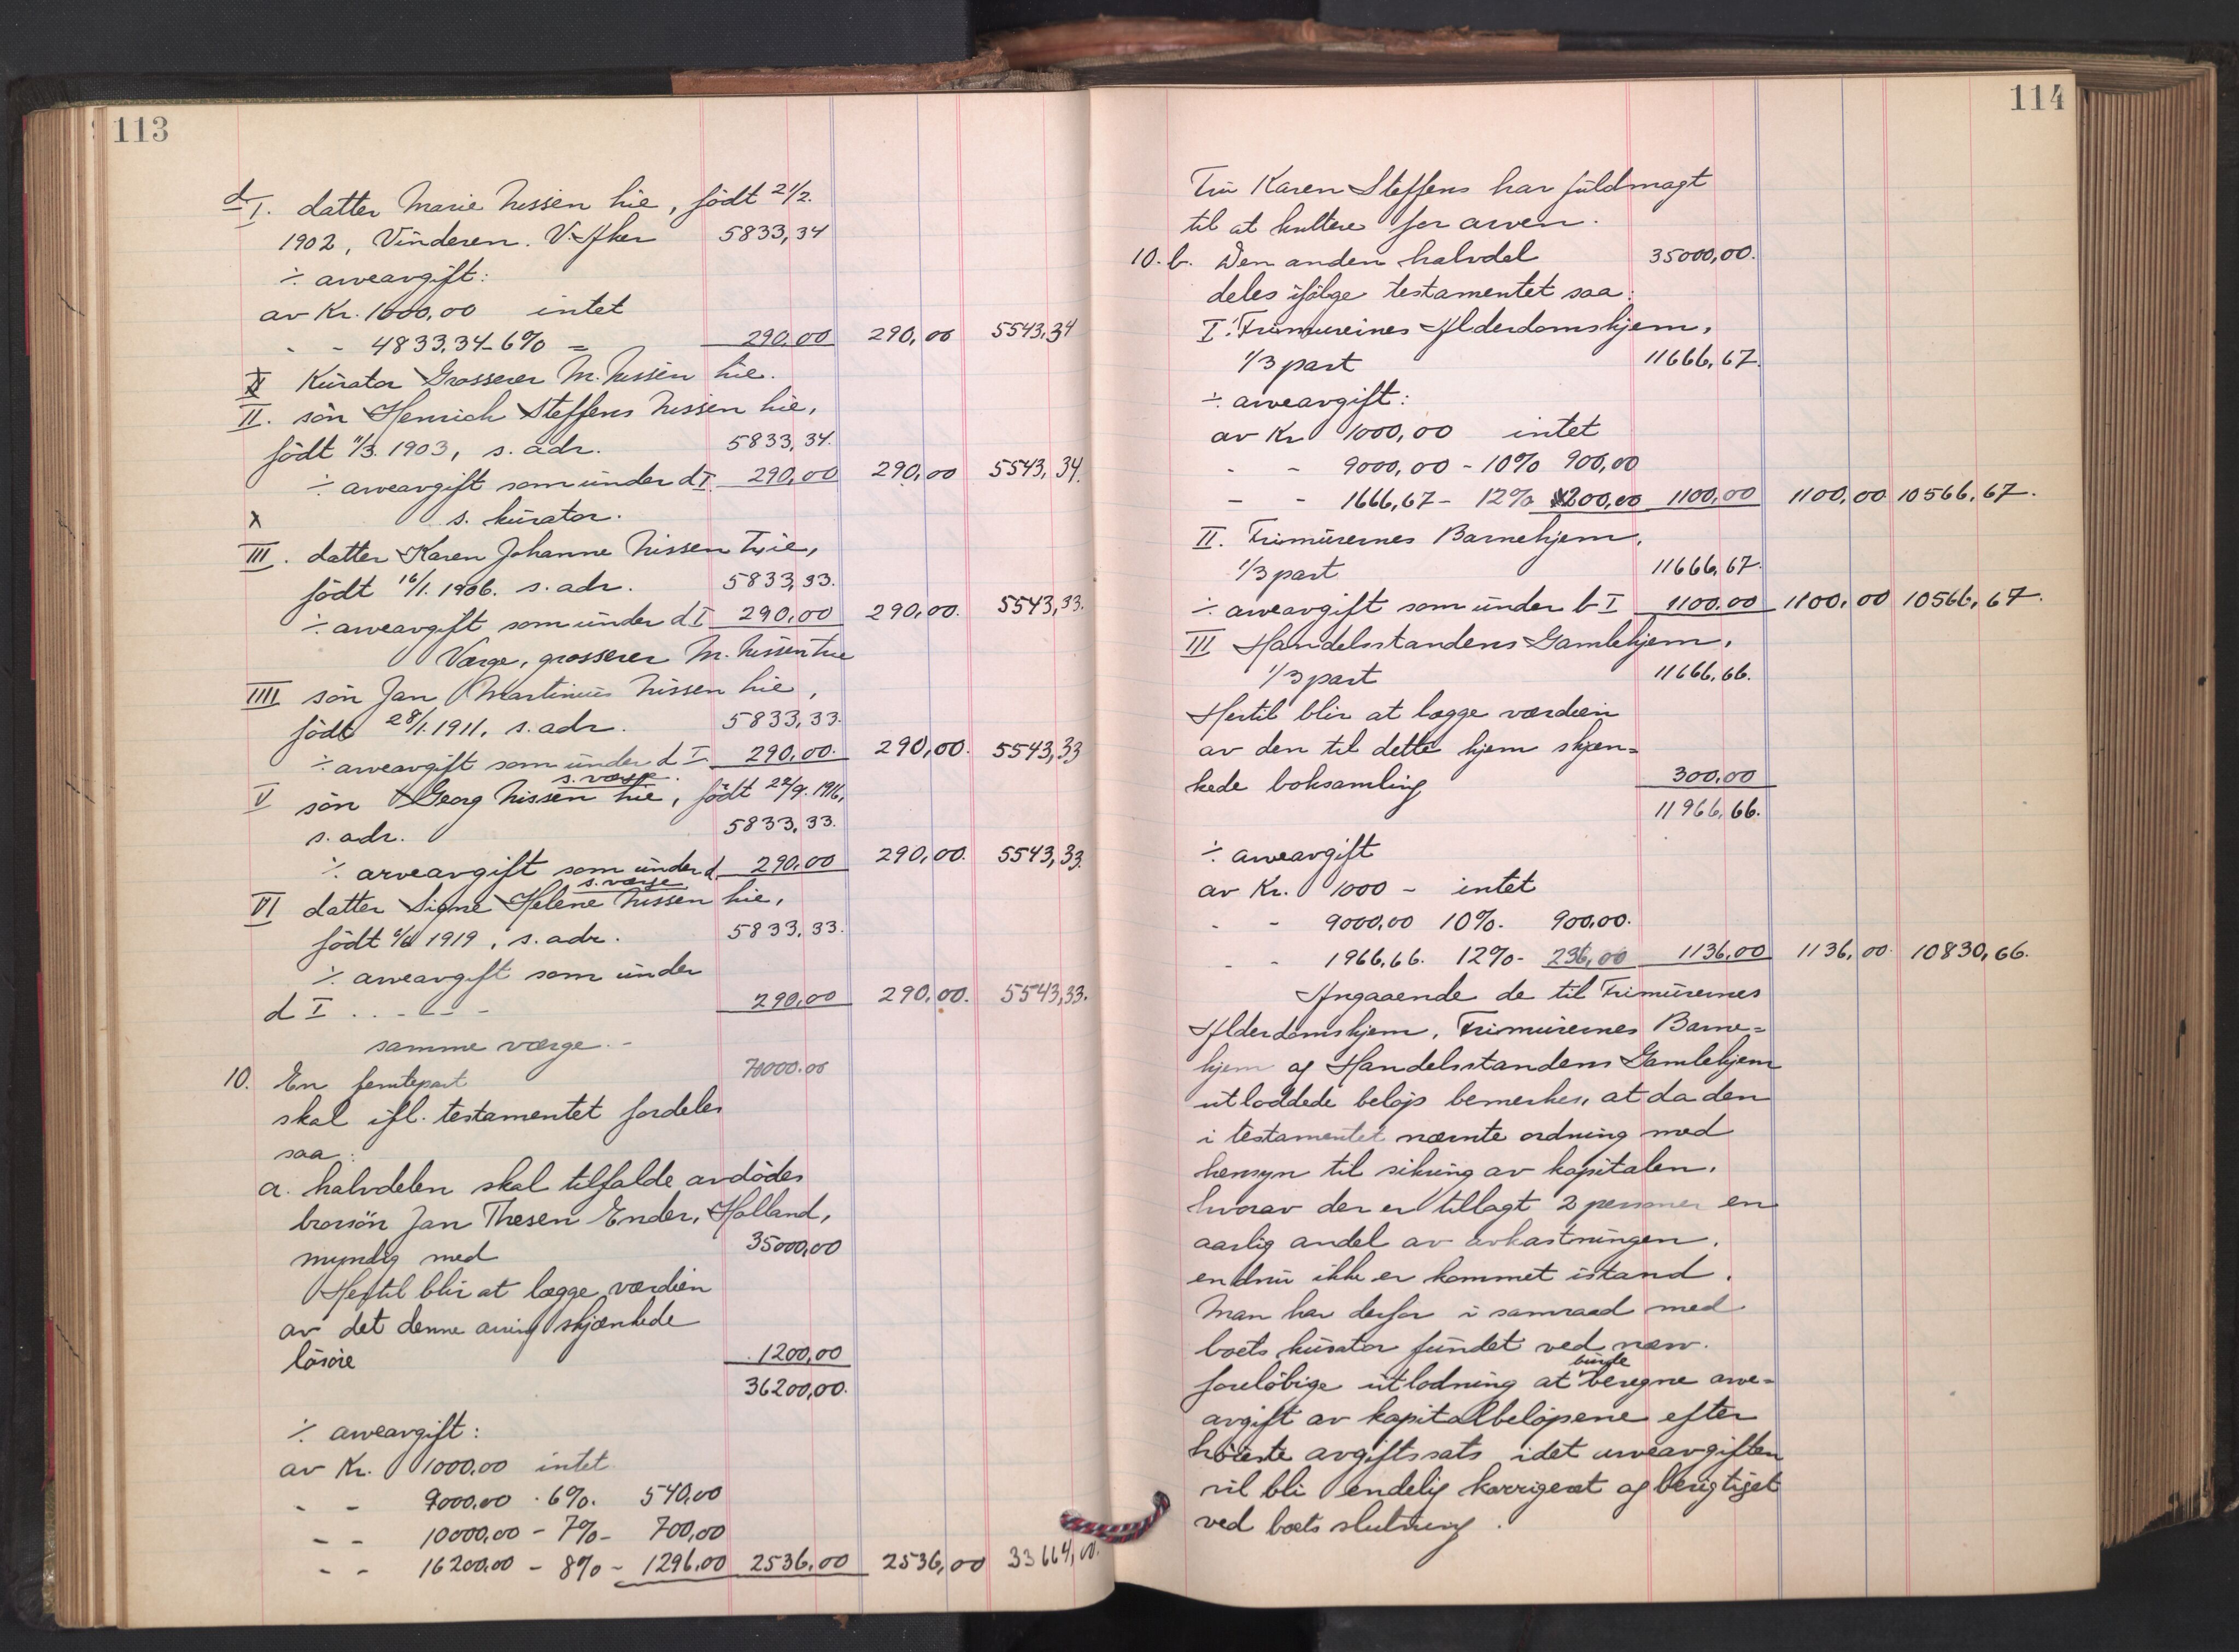 113
d I. datter Marie Nissen hie, födt 2 1/2.
1902, Vinderen. V. Aker 5833,34
÷ arveavgift:
av Kr. 1000,00 intet
- - 4833,34 - 6% = 290,00 290,00 5543,34
X Kurator Grosserer M. Nissen hie.
II. sön Henrich Steffens Nissen hie,
födt 11/3. 1903, s. adr. 5833,34.
÷ arveavgift som under d I. 290,00 290,00 5543,34.
X s. kurator.
III. datter Karen Johanne Nissen hie,
födt 16/1. 1906. s. adr. 5833,33.
÷ arveavgift som under d I 290,00 290,00. 5543,33.
Værge, grosserer M. Nissen hie
IIII sön Jan Martinius Nissen hie,
födt 28/1. 1911, s. adr. 5833,33.
÷ arveavgift som under d I. 290,00. 290,00. 5543,33
s. værge.
V sön Georg Nissen hie, födt 22/9. 1916,
s. adr. 5833,33.
÷ arveavgift som under d 290,00 290,00. 5543,33.
s. værge
VI datter Signe Helene Nissen hie,
födt 1919, s. adr. 5833,33.
÷ arveavgift som under
d I . . - - - 290,00 290,00. 5543,33.
samme værge. -
10. En femtepart 70000.00
skal ifl. testamentet fordeles
saa:
a. halvdelen skal tilfalde avdödes
brorsön Jan Thesen Ender, Holland,
myndig med 35000,00
Hertil blir at lægge værdien
av det denne arving skjænkede
lösöre 1200,00
36200,00.
÷ arveavgift:
av Kr. 1000,00 intet
- - 9000,00 - 6%. 540,00
- - 10000,00 - 7% - 700,00
- - 16200,00 - 8% - 1296,00 2536,00 2536,00 33664,00.
114
Fru Karen Steffens har fuldmagt
til at kvittere for arven.
10. b. Den anden halvdel 35000,00.
deles ifölge testamentet saa:
I. Frimurernes Alderdomshjem,
1/3 part 11666,67.
÷ arveavgift:
av Kr 1000,00 intet
- - 9000,00 - 10% 900,00
- - 1666,67 - 12% 200,00 1100,00 1100,00 10566,67.
II. Frimurernes Barnehjem,
1/3 part 11666,67.
÷ arveavgift som under b I 1100.00 1100,00 10566,67.
III Handelsstandens Gamlehjem,
1/3 part 11666,66.
Hertil blir at lægge værdien
av den til dette hjem skjæn=
kede boksamling 300,00
11966,66.
÷ arveavgift
av Kr. 1000 - intet
- - 9000,00 10%. 900,00.
- - 1966,66. 12% - 236,00 1136,00 1136,00. 10830,66.
Angaaende de til Frimurernes
Alderdomshjem, Frimurernes Barne=
hjem og Handelsstandens Gamlehjem
utloddede belöp bemerkes, at da den
i testamentet nævnte ordning med
hensyn til sikring av kapitalen,
hvorav der er tillagt 2 personer en
aarlig andel av avkastningen,
endnu ikke er kommet istand.
Man har derfor i samraad med
boets kurator fundet ved nærv.
burde
foreløbige utlodning at beregne arve=
avgift av kapitalbelöpene efter
höieste avgiftssats idet arveavgiften
vil bli endelig korrigeret og berigtiget
ved boets slutning.